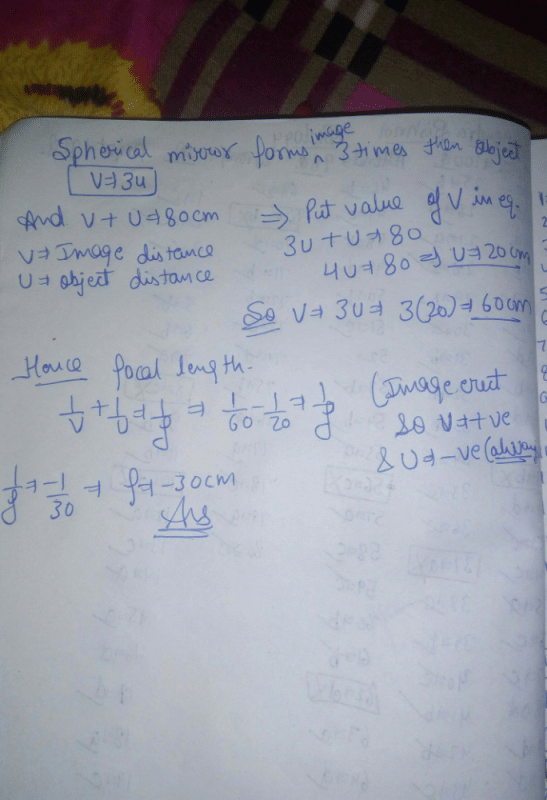 Spherical mirror forms image 3 times then object
V⇒3u
And V + U⇒80cm ⇒ Put value of V in eq.
V⇒ Image distance
3U + U⇒80
U⇒ object distance
4U⇒80 ⇒ U⇒20cm
So V⇒ 3U⇒ 3(20)⇒60cm
Hence focal length-
1/V + 1/U ⇒ 1/f ⇒ 1/60 - 1/20 ⇒ 1/f (Image erect
So V⇒+ve
& U⇒-ve (alway
1/f ⇒ -1/30 ⇒ f⇒ -30cm
Ans